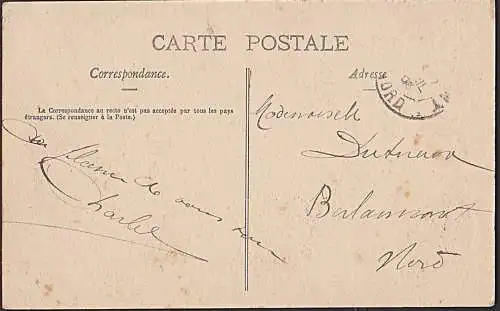 CARTE POSTALE
Correspondance.
Adresse
La Correspondance au recto n'est pas acceptée par tous les pays
étrangers. (Se renseigner à la Poste.)
Au plaisir de vous voir
Charles
Mademoiselle
Berlaimont
Nord
NORD